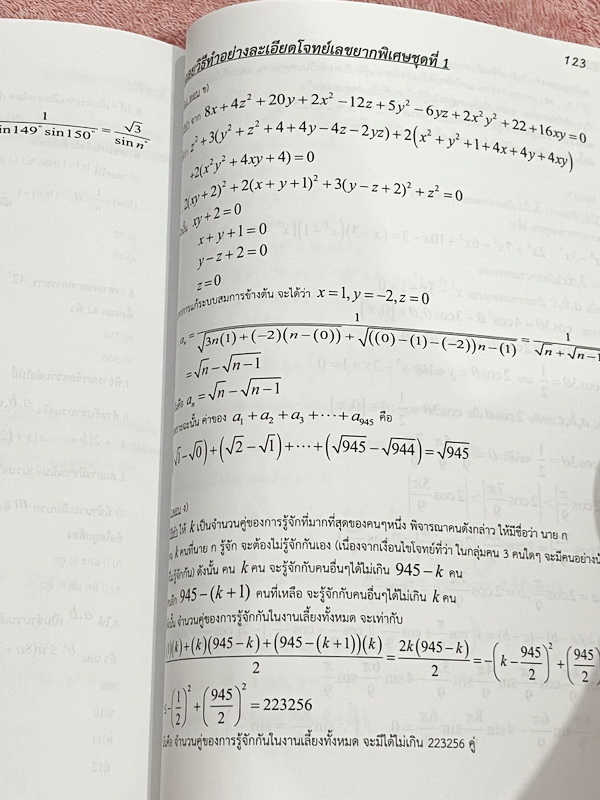 1
sin149° sin150° = √3 / sin n°
วิธีทำอย่างละเอียดโจทย์เลขยากพิเศษชุดที่ 1
123
จาก 8x+4z²+20y+2x²−12z+5y²−6yz+2x²y²+22+16xy=0
z²+3(y²+z²+4+4y−4z−2yz)+2(x²+y²+1+4x+4y+4xy)
+2(x²y²+4xy+4)=0
2(xy+2)²+2(x+y+1)²+3(y−z+2)²+z²=0
xy+2=0
x+y+1=0
y−z+2=0
z=0
การแก้ระบบสมการข้างต้น จะได้ว่า x=1, y=−2, z=0
aₙ = 1 / (√(3n(1)+(−2)(n−(0))) + √(((0)−(1)−(−2))n−(1))) = 1 / (√n+√(n−1
=√n−√(n−1)
คือ aₙ=√n−√(n−1)
ฉะนั้น ค่าของ a₁+a₂+a₃+⋯+a₉₄₅ คือ
√1−√0)+(√2−√1)+⋯+(√945−√944)=√945
ง)
ให้ k เป็นจำนวนคู่ของการรู้จักที่มากที่สุดของคนๆหนึ่ง พิจารณาคนดังกล่าว ให้มีชื่อว่า นาย ก
k คนที่นาย ก รู้จัก จะต้องไม่รู้จักกันเอง (เนื่องจากเงื่อนไขโจทย์ที่ว่า ในกลุ่มคน 3 คนใดๆ จะมีคนอย่างน้
รู้จักกัน) ดังนั้น คน k คน จะรู้จักกับคนอื่นๆได้ไม่เกิน 945−k คน
อีก 945−(k+1) คนที่เหลือ จะรู้จักกับคนอื่นๆได้ไม่เกิน k คน
จำนวนคู่ของการรู้จักกันในงานเลี้ยงทั้งหมด จะเท่ากับ
)(k)+(k)(945−k)+(945−(k+1))(k) / 2 = 2k(945−k) / 2 = −(k−945/2)²+(945/2)
≤−(1/2)²+(945/2)²=223256
คือ จำนวนคู่ของการรู้จักกันในงานเลี้ยงทั้งหมด จะมีได้ไม่เกิน 223256 คู่